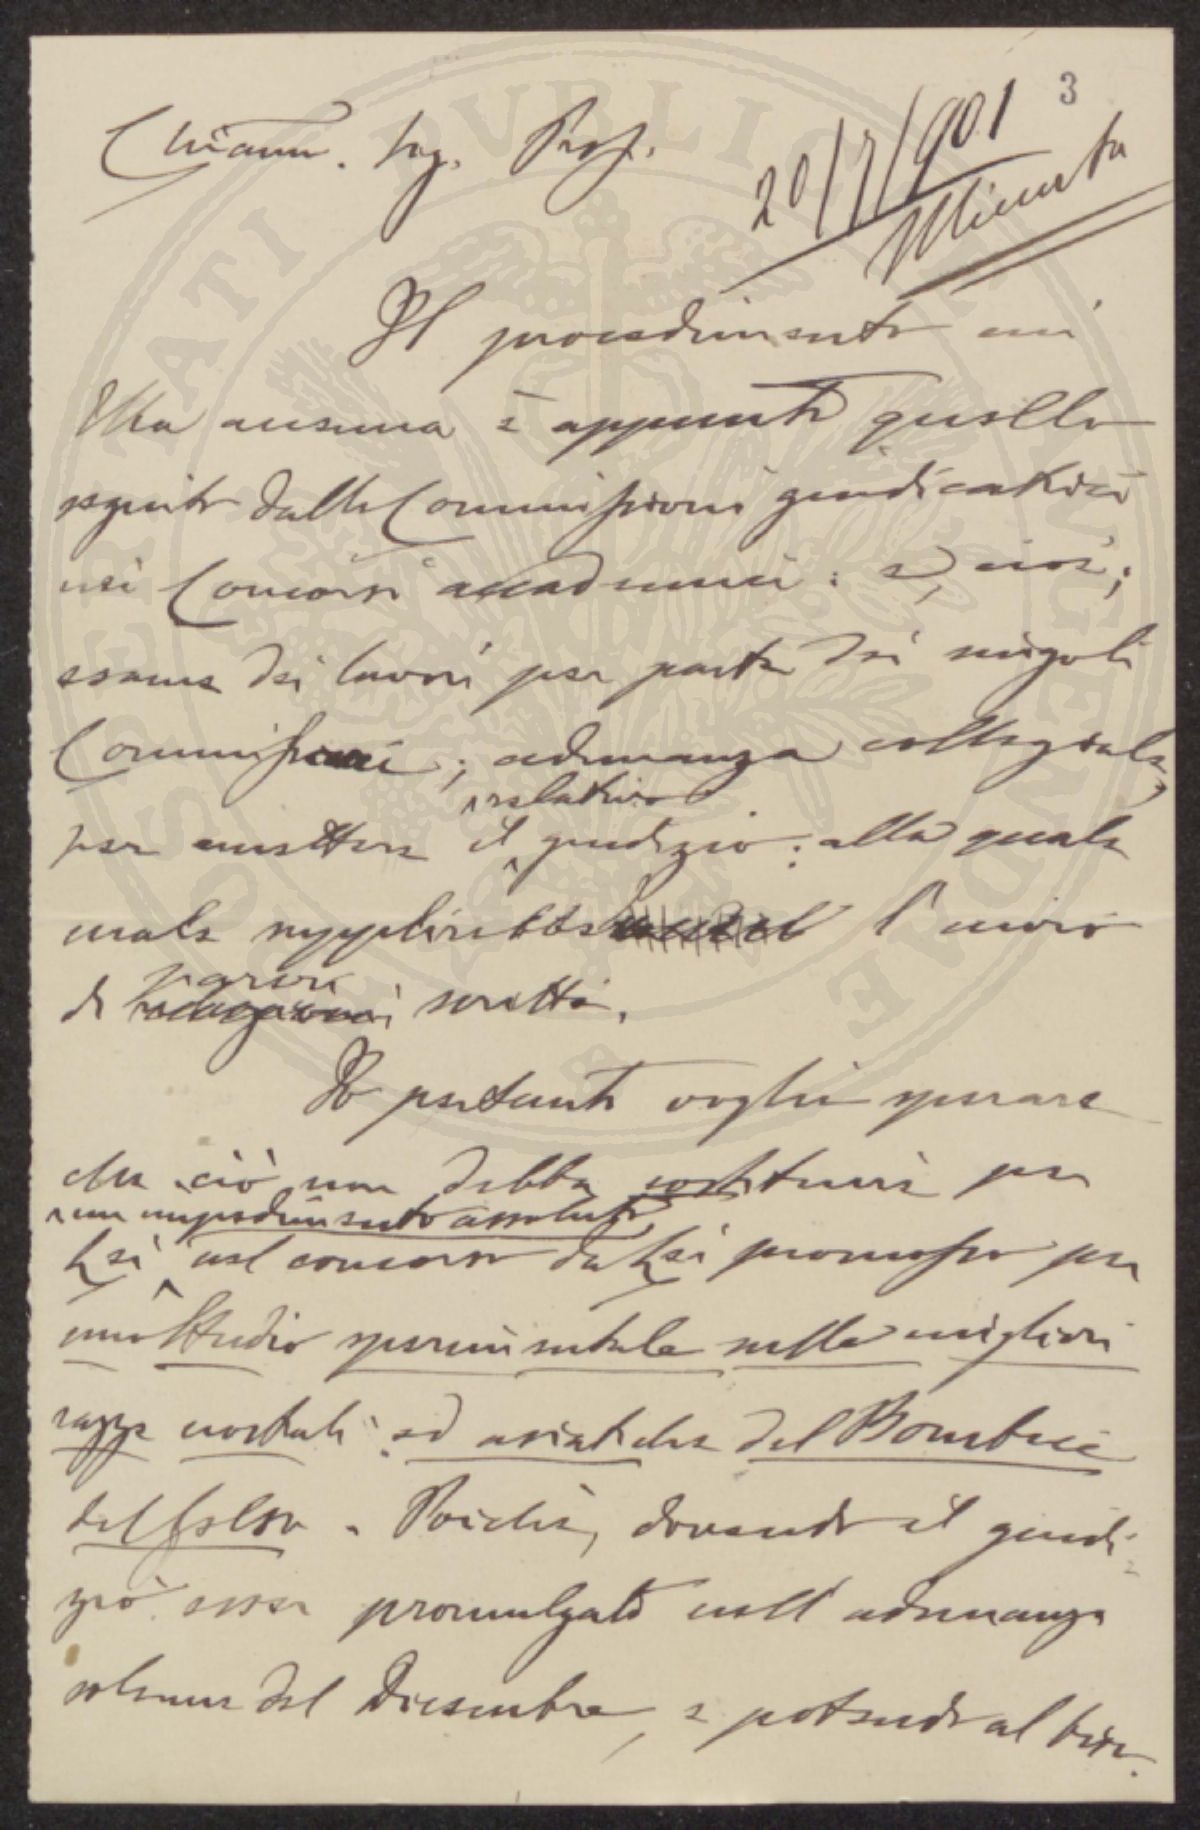 3
20/7/901
Minuta
Chiarm. Sig. Prof.
Il procedimento cui
Ella accenna è appunto quello
seguito dalle Commissioni giudicatrici
nei Concorsi accademici: e, cioè;
esame dei lavori per parte dei singoli
Commissari; adunanza collegiale,
relativo
per emettere il giudizio: alla quale
male supplirebbe l'invio
pareri
di redazioni scritti.
Io pertanto voglio sperare
che ciò non debba costituire per
un impedimento assoluto
Lei nel concorso da Lei promosso per
uno Studio sperimentale sulle migliori
razze nostrali ed asiatiche del Bombice
del Gelso. Poichè, dovendo il giudi-
zio esser promulgato nell'adunanza
solenne del Dicembre, e potendo al